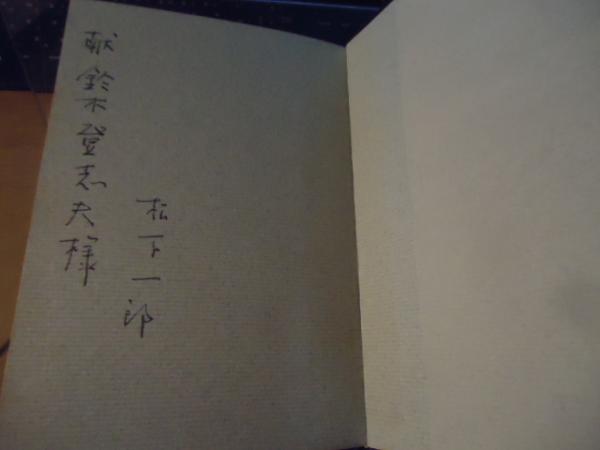 献 鈴木登志夫様
松下一郎